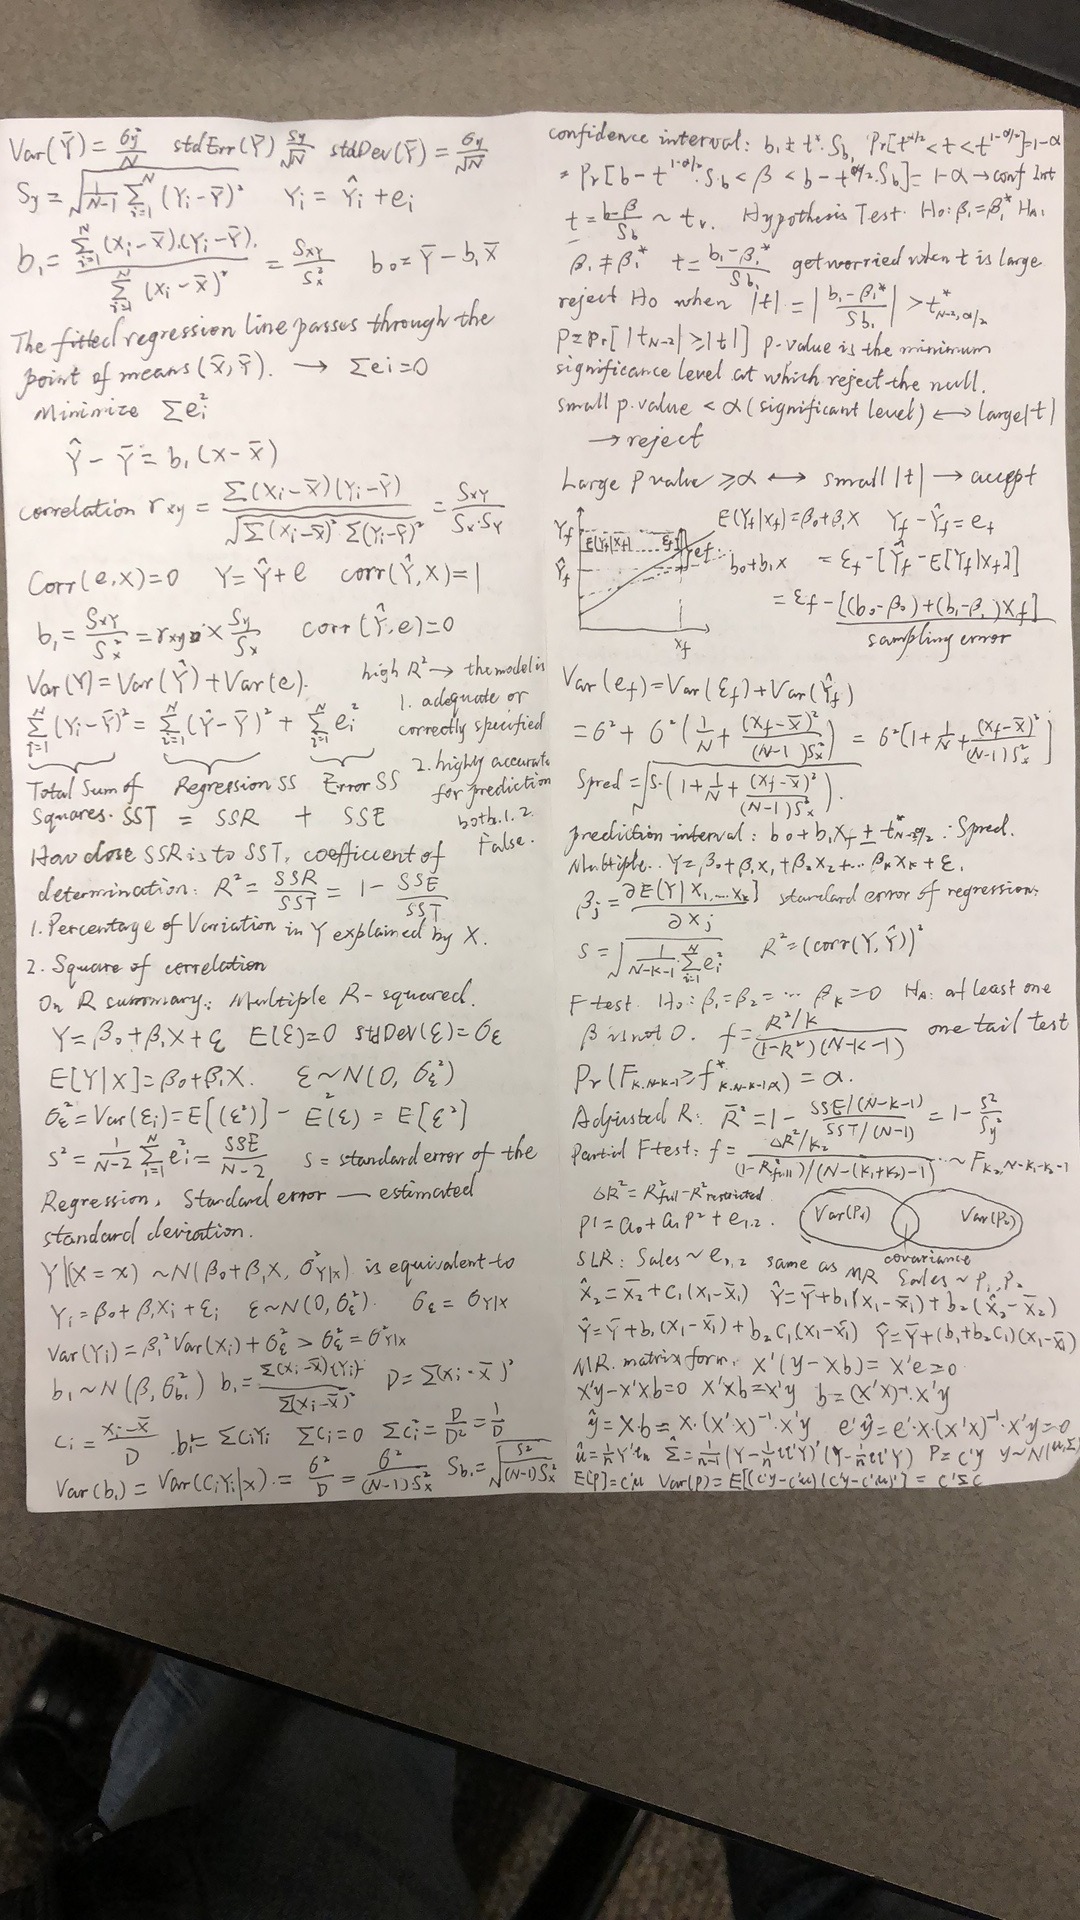 Var(Ȳ) = σy²/N   stdErr(Ȳ) Sy/√N   stdDev(Ȳ) = σy/√N
Sy = √(1/(N-1) Σ_{i=1}^{N} (Yi - Ȳ)²)   Yi = Ŷi + ei
b₁ = Σ_{i=1}^{N} (Xi - X̄).(Yi - Ȳ). / Σ_{i=1}^{N} (Xi - X̄)² = Sxy/Sx²   b₀ = Ȳ - b₁X̄
The fitted regression line passes through the
point of means (X̄, Ȳ). → Σei = 0
Minimize Σei²
Ŷ - Ȳ = b₁(X - X̄)
correlation rxy = Σ(Xi - X̄)(Yi - Ȳ) / √(Σ(Xi - X̄)² Σ(Yi - Ȳ)²) = Sxy/(Sx·Sy)
Corr(e, X) = 0   Y = Ŷ + e   corr(Ŷ, X) = 1
b₁ = Sxy/Sx² = rxy × Sy/Sx   corr(Ŷ, e) = 0
Var(Y) = Var(Ŷ) + Var(e).
Σ_{i=1}^{N} (Yi - Ȳ)² = Σ_{i=1}^{N} (Ŷ - Ȳ)² + Σ_{i=1}^{N} ei²
Total Sum of   Regression SS   Error SS
Squares. SST = SSR + SSE
high R² → the model is
1. adequate or
correctly specified
2. highly accurate
for prediction
both. 1. 2.
False.
How close SSR is to SST, coefficient of
determination: R² = SSR/SST = 1 - SSE/SST
1. Percentage of Variation in Y explained by X.
2. Square of correlation
On R summary: Multiple R-squared.
Y = β₀ + β₁X + ε   E(ε) = 0   stdDev(ε) = σε
E[Y|X] = β₀ + β₁X.   ε ~ N(0, σε²)
σε² = Var(εi) = E[(ε²)] - E²(ε) = E[ε²]
S² = 1/(N-2) Σ_{i=1}^{N} ei² = SSE/(N-2)   S = standard error of the
Regression, Standard error — estimated
standard deviation.
Y|(X = x) ~ N(β₀ + β₁X, σ²Y|x) is equivalent to
Yi = β₀ + β₁Xi + εi   ε ~ N(0, σε²).   σε = σY|x
Var(Yi) = β₁² Var(Xi) + σε² > σε² = σ²Y|x
b₁ ~ N(β, σb₁²)   b₁ = Σ(Xi - X̄)(Yi) / Σ(Xi - X̄)²   D = Σ(Xi - X̄)²
Ci = (Xi - X̄)/D   b₁ = ΣCiYi   ΣCi = 0   ΣCi² = D/D² = 1/D
Var(b₁) = Var(CiYi|x). = σ²/D = σ²/((N-1)Sx²)   Sb₁ = √(S²/((N-1)Sx²))
confidence interval: b₁ ± t*. Sb₁   Pr[t^{α/2} < t < t^{1-α/2}] = 1-α
= Pr[b - t^{1-α/2}. Sb < β < b - t^{α/2}. Sb] = 1-α → conf Int
t = (b-β)/Sb ~ tv.   Hypothesis Test. H₀: β₁ = β₁*   HA:
β₁ ≠ β₁*   t = (b₁ - β₁*)/Sb₁   get worried when t is large
reject H₀ when |t| = |(b₁ - β₁*)/Sb₁| > t*_{N-2, α/2}
P = Pr[|t_{N-2}| ≥ |t|] p-value is the minimum
significance level at which reject the null.
small p.value < α (significant level) ↔ large |t|
→ reject
Large P value ≥ α ↔ small |t| → accept
Yf   E(Yf|Xf)   εf   ef   E(Yf|Xf) = β₀ + β₁X   Yf - Ŷf = ef
Ŷf   b₀ + b₁X   = εf - [Ŷf - E[Yf|Xf]]
= εf - [(b₀ - β₀) + (b₁ - β₁)Xf]
Xf   sampling error
Var(ef) = Var(εf) + Var(Ŷf)
= σ² + σ²(1/N + (Xf - X̄)²/((N-1)Sx²)) = σ²[1 + 1/N + (Xf - X̄)²/((N-1)Sx²)]
Spred = √(S·(1 + 1/N + (Xf - X̄)²/((N-1)Sx²))).
prediction interval: b₀ + b₁Xf ± t*_{N-2, α/2} · Spred.
Multiple. Y = β₀ + β₁X₁ + β₂X₂ + ... βkXk + ε.
βj = ∂E(Y|X₁, ... Xk]/∂Xj   standard error of regression:
S = √(1/(N-k-1) Σ_{i=1}^{N} ei²)   R² = (corr(Y, Ŷ))²
F test. H₀: β₁ = β₂ = ... βk = 0   HA: at least one
β is not 0.   f = (R²/k)/((1-R²)(N-k-1))   one tail test
Pr(F_{k,N-k-1} ≥ f*_{k,N-k-1,α}) = α.
Adjusted R: R̄² = 1 - (SSE/(N-k-1))/(SST/(N-1)) = 1 - S²/Sy²
Partial F test: f = (ΔR²/k₂)/((1-R²full)/(N-(k₁+k₂)-1)) ~ F_{k₂, N-k₁-k₂-1}
ΔR² = R²full - R²restricted
P1 = a₀ + a₁P² + e₁.₂.   Var(P₁)   Var(P₂)
covariance
SLR: Sales ~ e₁.₂ same as MR Sales ~ P₁, P₂
X̂₂ = X̄₂ + C₁(X₁ - X̄₁)   Ŷ = Ȳ + b₁(X₁ - X̄₁) + b₂(X̂₂ - X̄₂)
Ŷ = Ȳ + b₁(X₁ - X̄₁) + b₂C₁(X₁ - X̄₁)   Ŷ = Ȳ + (b₁ + b₂C₁)(X₁ - X̄₁)
MR. matrix form. X'(y - Xb) = X'e = 0
X'y - X'Xb = 0   X'Xb = X'y   b = (X'X)⁻¹. X'y
ŷ = X·b = X·(X'X)⁻¹·X'y   e'ŷ = e'·X·(X'X)⁻¹·X'y = 0
û = 1/n Y'ιn   Σ̂ = 1/(n-1) (Y - 1/n ιι'Y)'(Y - 1/n ιι'Y)   P = C'y   y ~ N(μ, Σ)
E(p) = C'μ   Var(p) = E[(C'y - C'μ)(C'y - C'μ)'] = C'ΣC